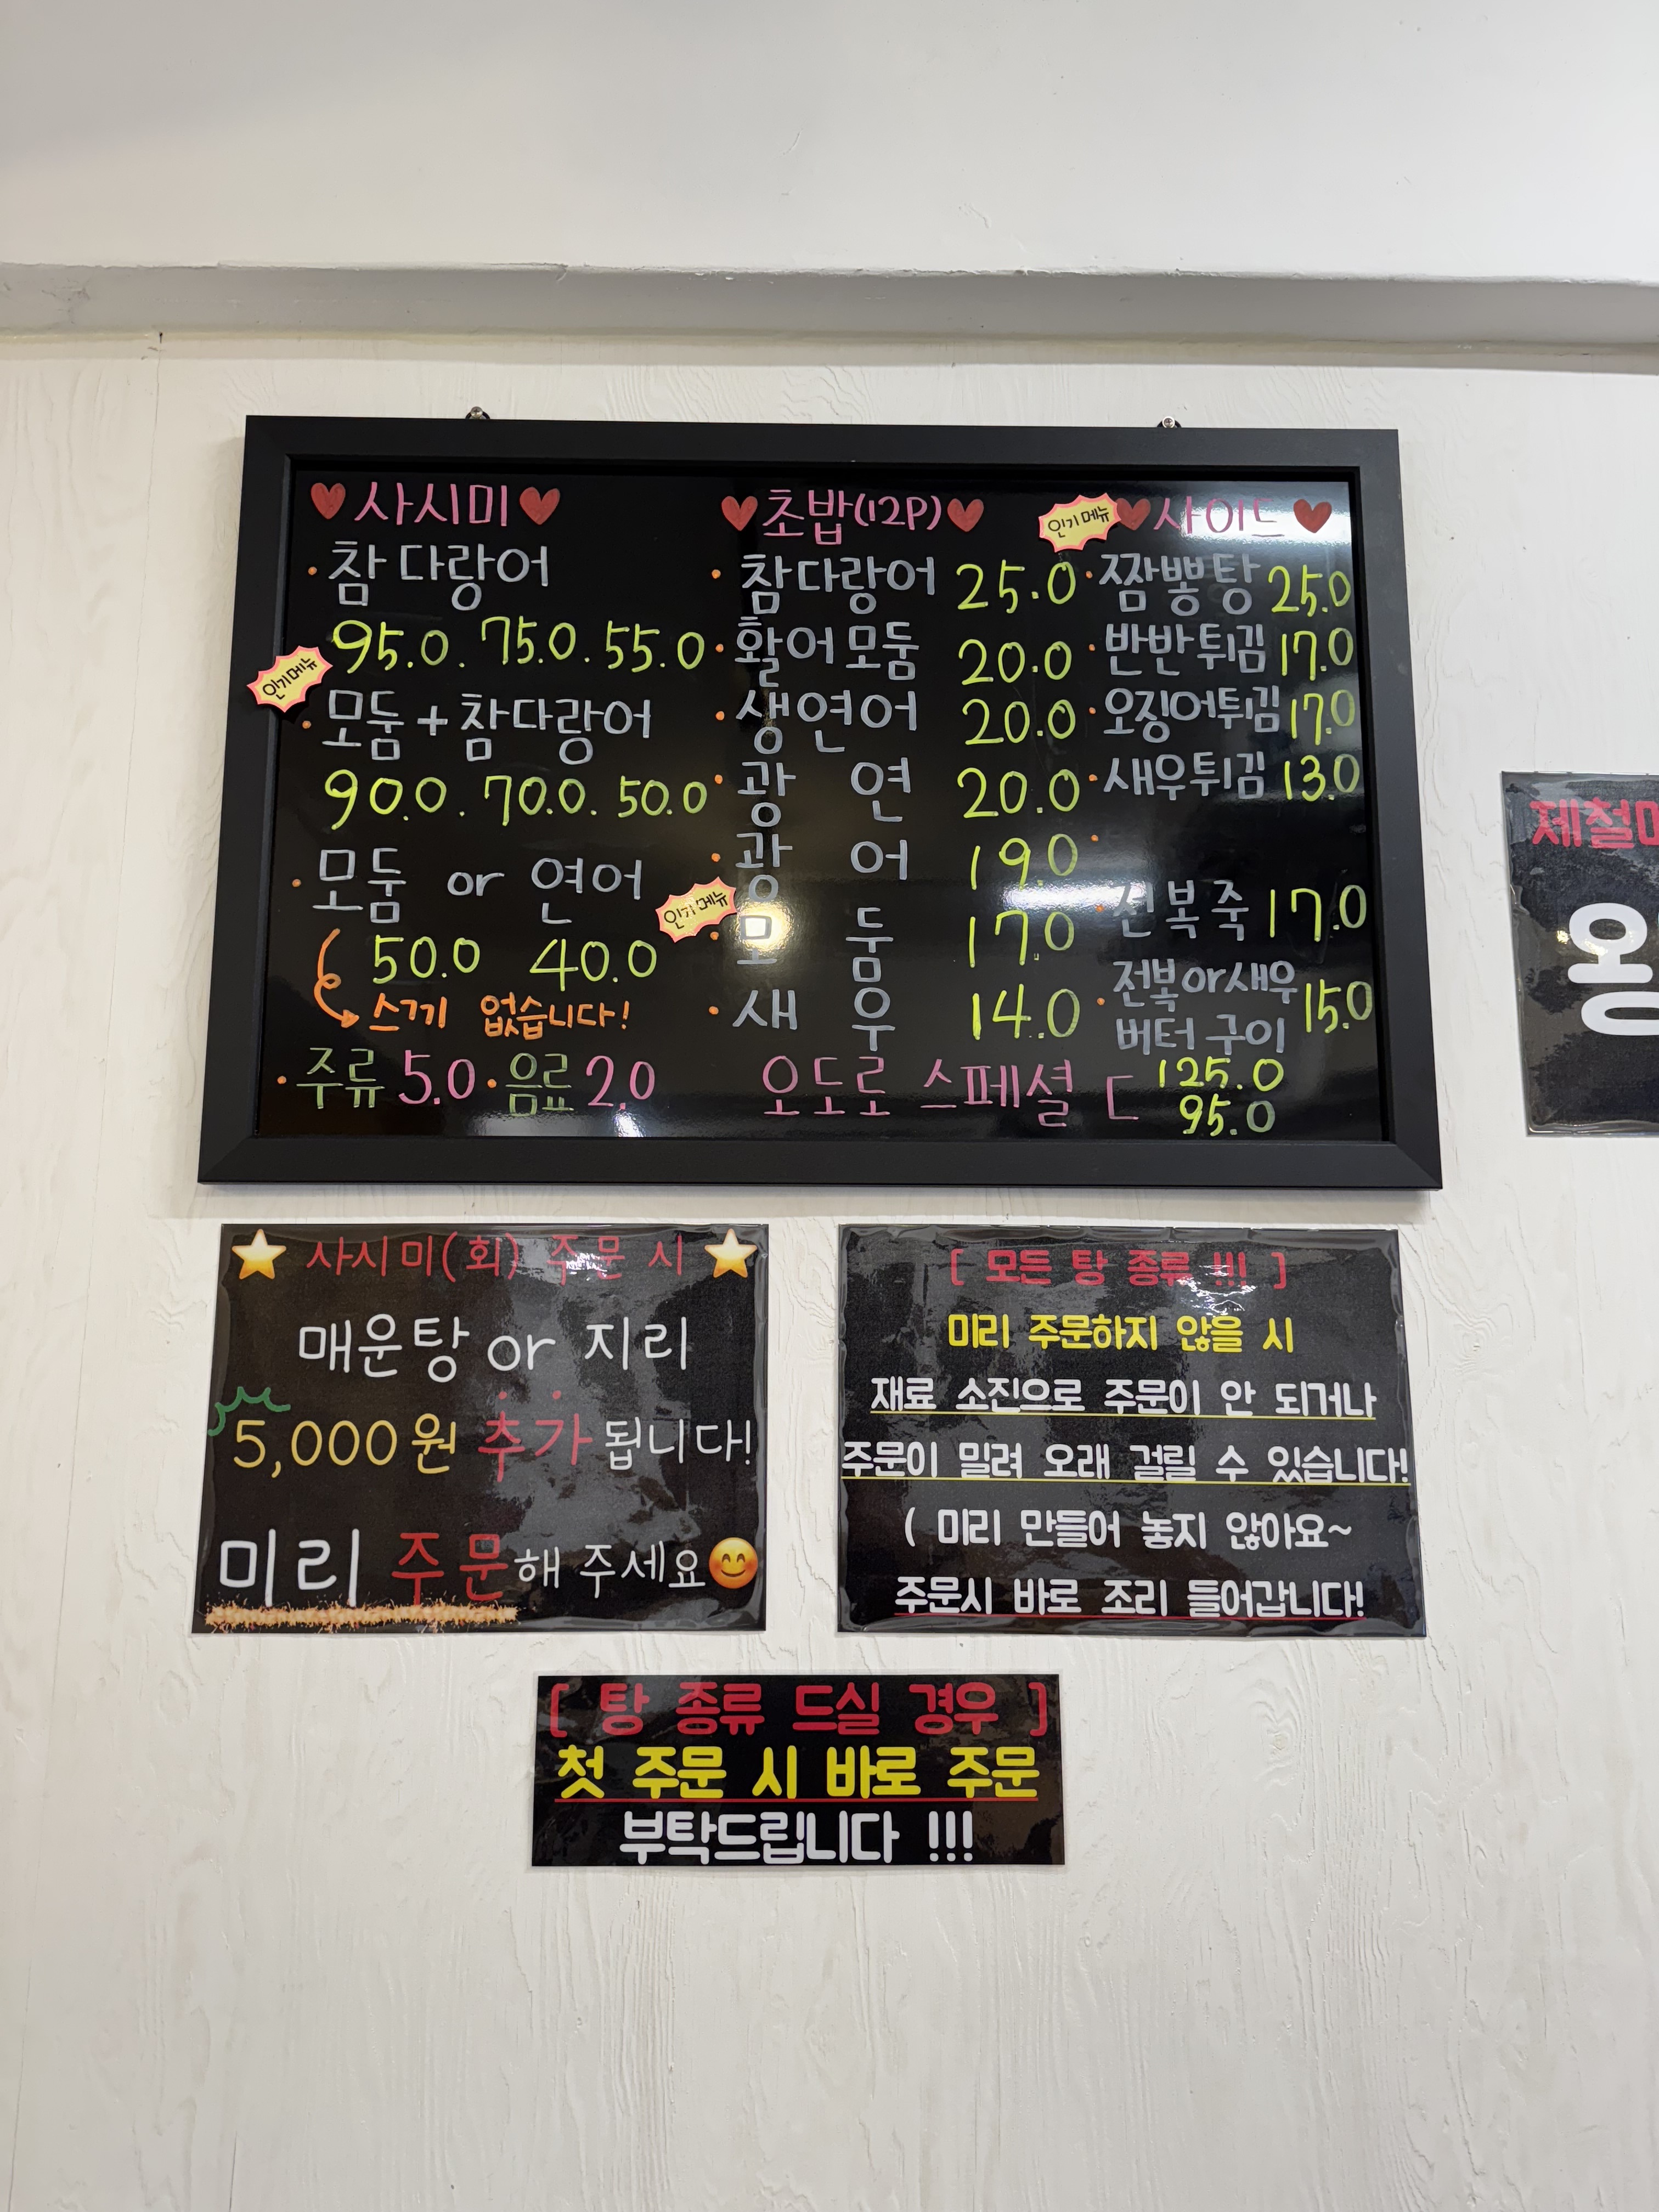 사시미
참다랑어
95.0. 75.0. 55.0
인기메뉴
모둠+참다랑어
90.0. 70.0. 50.0
모둠 or 연어
50.0 40.0
스끼 없습니다!
주류 5.0 음료 2.0
초밥(12P)
참다랑어 25.0
활어모둠 20.0
생연어 20.0
광 연 20.0
광 어 19.0
인기메뉴
모 둠 17.0
새 우 14.0
인기메뉴
사이드
짬뽕탕 25.0
반반튀김 17.0
오징어튀김 17.0
새우튀김 13.0
전복죽 17.0
전복or새우
버터구이 15.0
오도로 스페셜 [ 125.0
95.0
사시미(회) 주문 시
매운탕 or 지리
5,000원 추가 됩니다!
미리 주문해 주세요
[ 모든 탕 종류 !!! ]
미리 주문하지 않을 시
재료 소진으로 주문이 안 되거나
주문이 밀려 오래 걸릴 수 있습니다!
( 미리 만들어 놓지 않아요~
주문시 바로 조리 들어갑니다!
[ 탕 종류 드실 경우 ]
첫 주문 시 바로 주문
부탁드립니다 !!!
제철